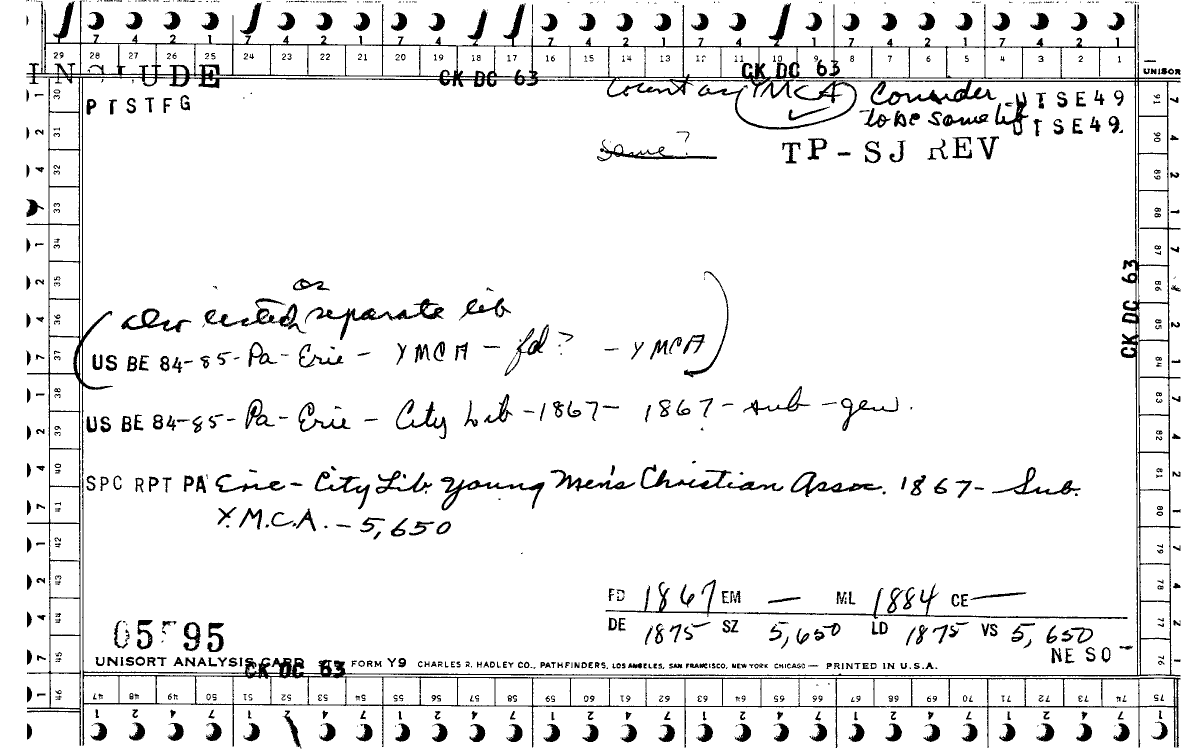 7 4 2 1 7 4 2 1 7 4 2 1 7 4 2 1 7 4 2 1 7 4 2 1 7 4 2 1
29 28 27 26 25 24 23 22 21 20 19 18 17 16 15 14 13 12 11 10 9 8 7 6 5 4 3 2 1
INCLUDE CK DC 63 CK DC 63 UNISOR
PTSTFG Count as YMCA Consider UTSE49
to be same lib UTSE49
same? TP-SJ REV
CK DC 63
or
(also listed separate lib
US BE 84-85-Pa-Erie- YMCA - fd? - YMCA)
US BE 84-85-Pa-Erie- City Lib -1867- 1867-sub-gen.
SPC RPT PA Erie-City Lib. Young Men's Christian Assoc. 1867- Sub.
Y.M.C.A. - 5,650
FD 1867 EM — ML 1884 CE —
DE 1875 SZ 5,650 LD 1875 VS 5,650
05595 NE SO -
UNISORT ANALYSIS CARD FORM Y9 CHARLES R. HADLEY CO., PATHFINDERS, LOS ANGELES, SAN FRANCISCO, NEW YORK CHICAGO — PRINTED IN U.S.A.
CK DC 63
46 47 48 49 50 51 52 53 54 55 56 57 58 59 60 61 62 63 64 65 66 67 68 69 70 71 72 73 74 75
1 2 4 7 1 2 4 7 1 2 4 7 1 2 4 7 1 2 4 7 1 2 4 7 1 2 4 7 1